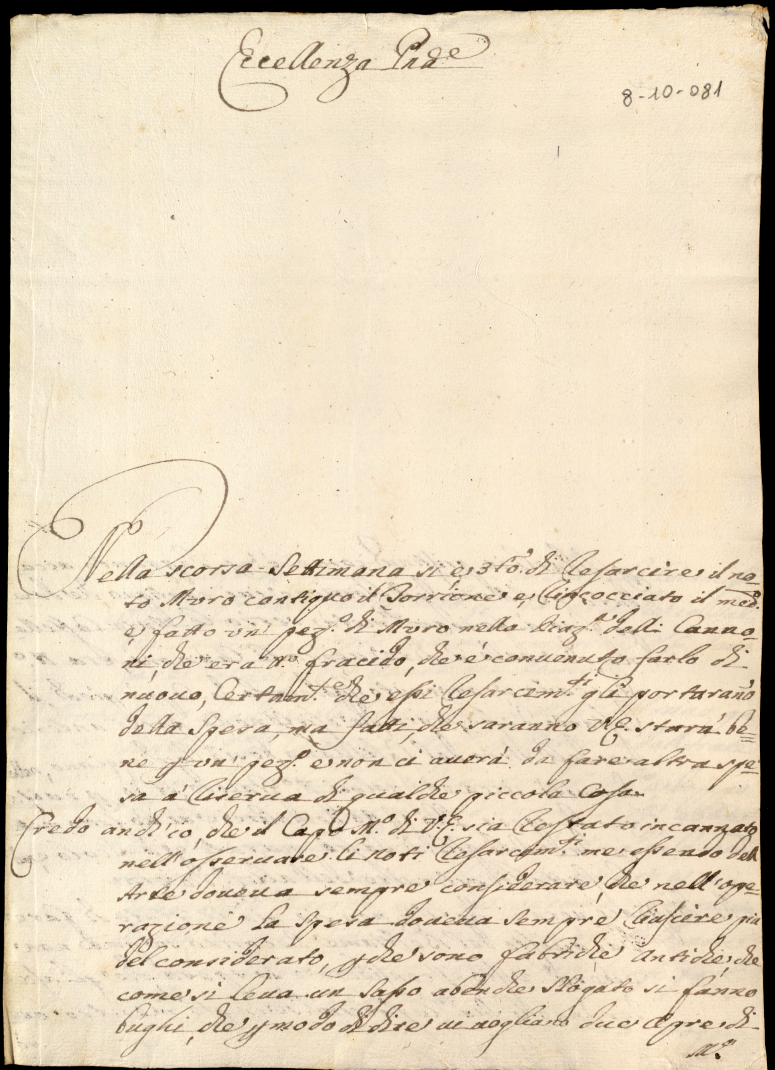 Eccellenza Pad.e
8-10-081
Nella scorsa Settimana si è di Resarcire il no=
to Muro contiguo il Torrione e, Rincocciato il med.o
è, fatto un' pez.o di Muro nella Piaz.a delli Canno=
ni, che era fracido, che è convenuto farlo di
nuovo, Certam.te che essi Resarcim.ti gli portarano
della Spesa, ma fatti, che saranno V.E. starà be=
ne p un' pez.o e non ci averà da fare altra spe=
sa à Riserva di qualche piccola Cosa
Credo anch'io, che il Capo M.o di V.E. sia Restato incannato
nell'osservare li noti Resarcim.ti me essendo dell
Arte doveva sempre considerare, che nell'ope=
razione la spesa doveva sempre Riuscire piu
del considerato, p che sono fabriche Antiche, che
come si leva un Sasso abenche slogato si fanno
bughi, che p modo di dire vi vogliano due di